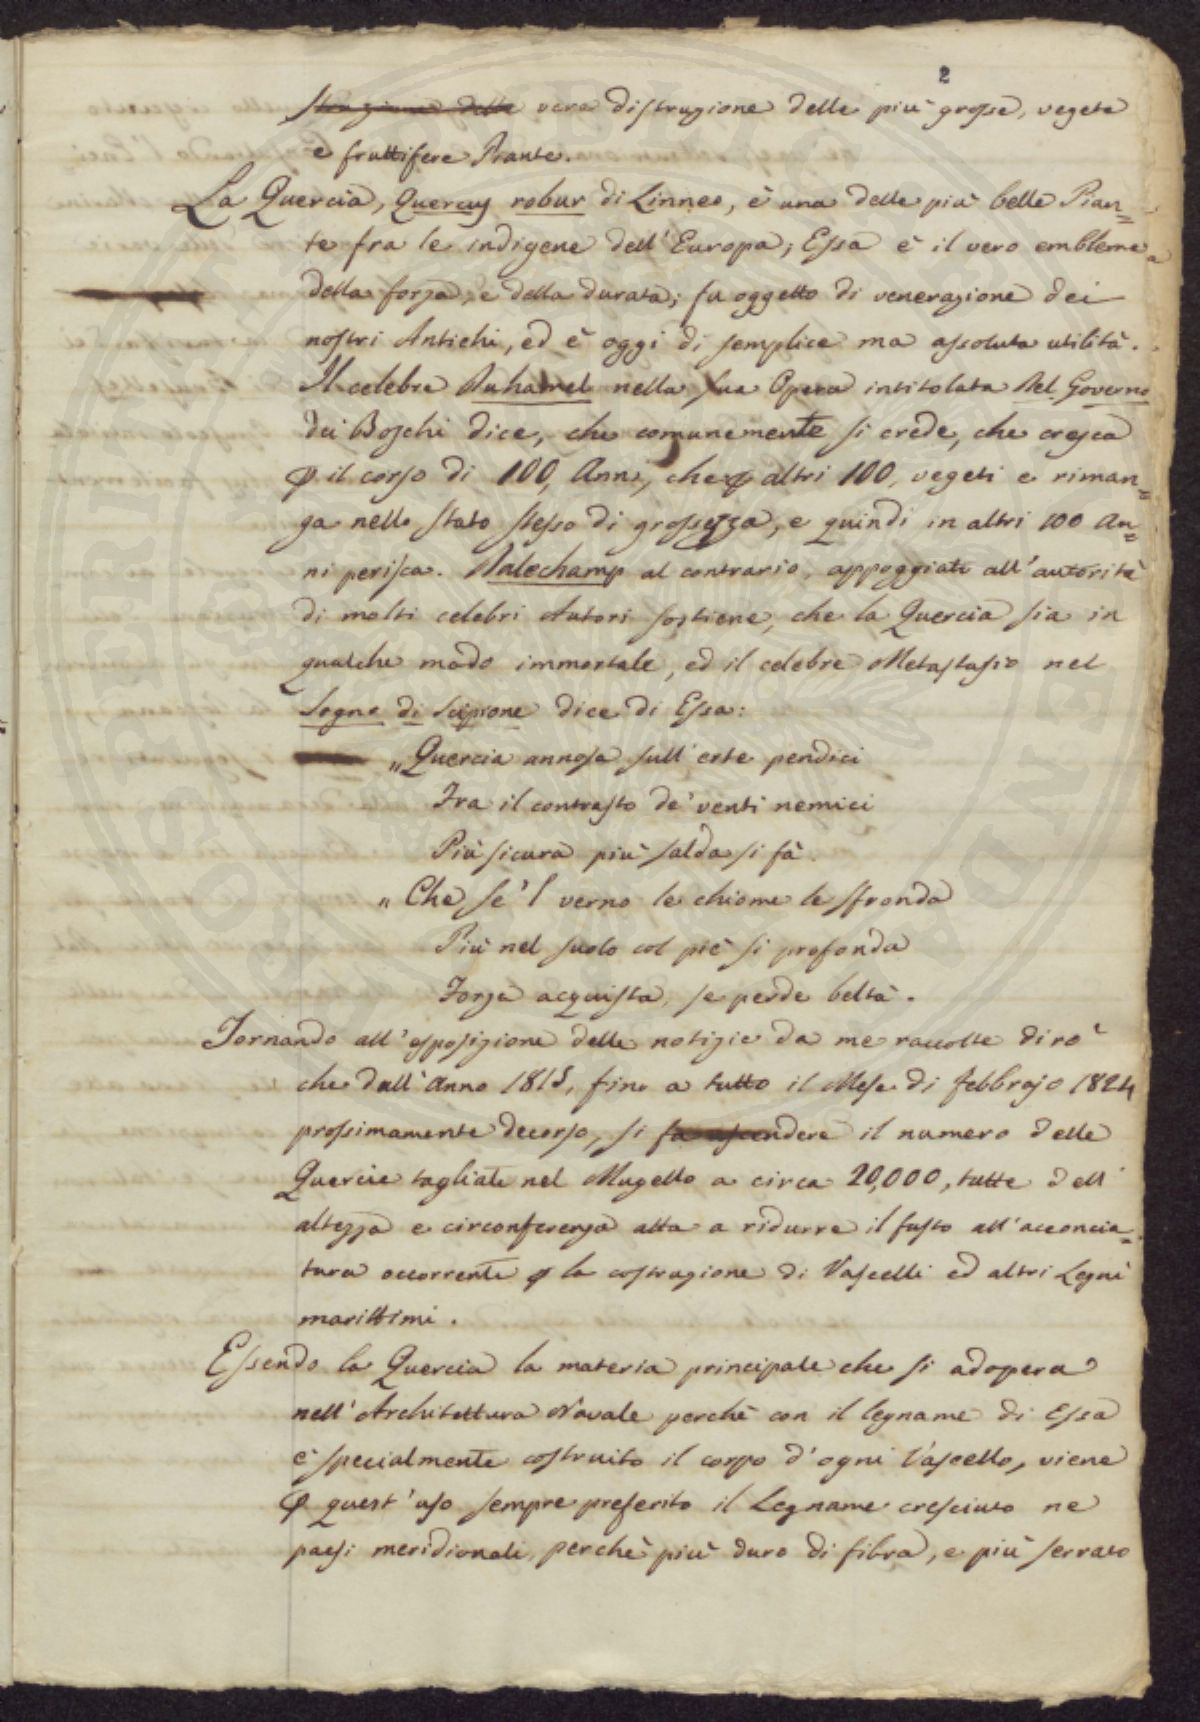 2
struzione della vera distruzione delle più grosse, vegete
e fruttifere Piante.
La Quercia, Quercus robur di Linneo, è una delle più belle Pian=
te fra le indigene dell'Europa; Essa è il vero emblema
della forza, e della durata; fu oggetto di venerazione dei
nostri Antichi, ed è oggi di semplice ma assoluta utilità.
Il celebre Duhamel nella sua Opera intitolata Del Governo
dei Boschi dice, che comunemente si crede, che cresca
ꝑ il corso di 100, Anni, che ꝑ altri 100, vegeti e riman=
ga nello stato stesso di grossezza, e quindi in altri 100 An=
ni perisca. Dalechamp al contrario, appoggiato all'autorità
di molti celebri Autori sostiene, che la Quercia sia in
qualche modo immortale, ed il celebre Metastasio nel
Sogno di Scipione dice di Essa:
„ Quercia annosa sull'erte pendici
Fra il contrasto de' venti nemici
Più sicura più salda si fà.
„ Che se'l verno le chiome le sfronda
Più nel suolo col piè si profonda
Forza acquista, se perde beltà.
Tornando all'esposizione delle notizie da me raccolte dirò
che dall'Anno 1815, fino a tutto il Mese di Febbrajo 1824
prossimamente decorso, si fa ascendere il numero delle
Quercie tagliate nel Mugello a circa 20,000, tutte dell'
altezza e circonferenza atta a ridurre il fusto all'acconcia=
tura occorrente ꝑ la costruzione di Vascelli ed altri Legni
marittimi.
Essendo la Quercia la materia principale che si adopera
nell'Architettura Navale perchè con il legname di Essa
è specialmente costruito il corpo d'ogni Vascello, viene
ꝑ quest'uso sempre preferito il Legname cresciuto ne
paesi meridionali, perchè più duro di fibra, e più serrato